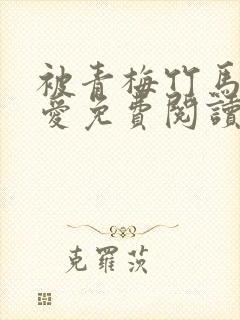 被青梅竹馬
愛免費閱讀
克羅茨